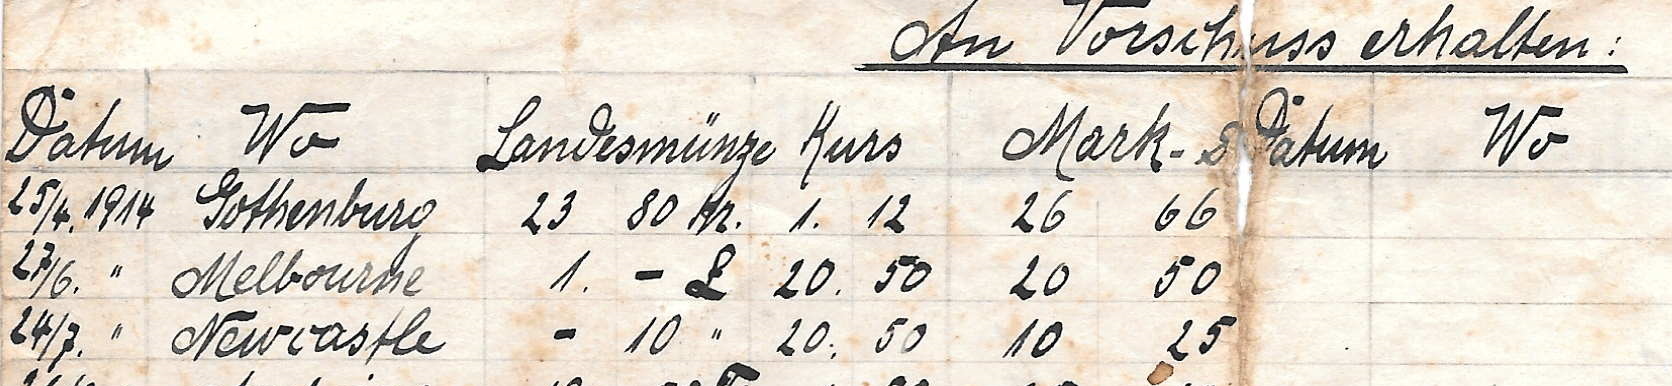 An Vorschuss erhalten:
Datum Wo Landesmünze Kurs Mark- Datum Wo
25/4. 1914 Gothenburg 23 80 Kr. 1. 12 26 66
27/6. " Melbourne 1. - £ 20. 50 20 50
24/7. " Newcastle - 10 " 20. 50 10 25